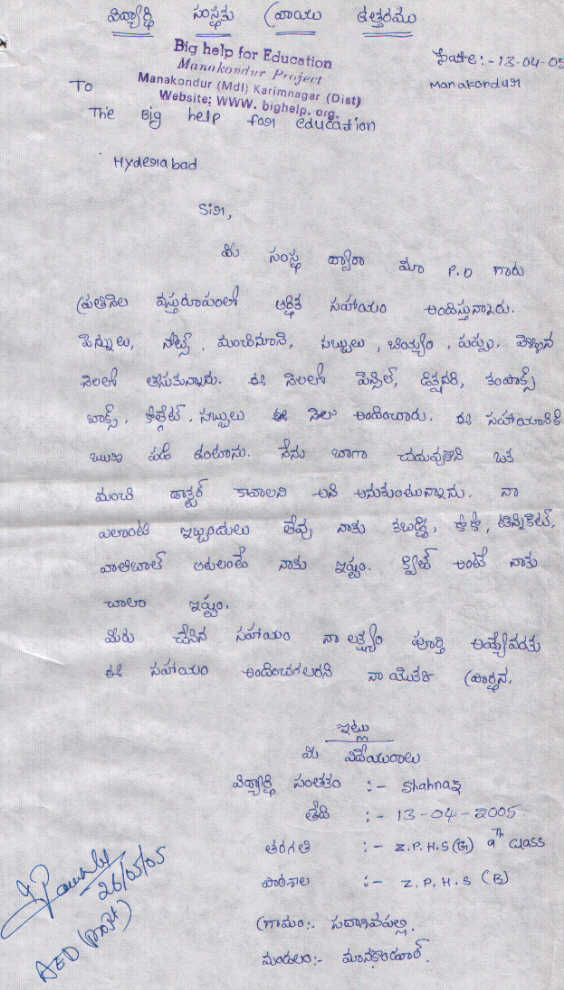 విద్యార్థి సంస్థకు వ్రాయు ఉత్తరము
Big help for Education
Manakondur Project
Manakondur (Mdl) Karimnagar (Dist)
Website; WWW. bighelp. org.
తేది :- 13-04-05
Manakondur
To
The Big help for education
Hyderabad
Sir,
మీ సంస్థ ద్వారా మా P.D గారు
ప్రతినెల వస్తురూపంలో ఆర్థిక సహాయం అందిస్తున్నారు.
పెన్నులు, నోట్స్, మంచినూనె, సబ్బులు, బియ్యం, పప్పు,
నెలలో తీసుకున్నాను. ఈ నెలలో పెన్సిల్, డిక్షనరి, కంపాక్స్
బాక్స్, కోల్గేట్, సబ్బులు ఈ నెల అందించారు. ఈ సహాయానికి
ఋణ పడి ఉంటాను. నేను బాగా చదువుకొని ఒక
మంచి డాక్టర్ కావాలని అని అనుకుంటున్నాను. నా
ఎలాంటి ఇబ్బందులు లేవు నాకు కబడ్డి, కోకో, టెన్నికెట్,
వాలిబాల్ ఆటలంటే నాకు ఇష్టం. క్విజ్ అంటే నాకు
చాలా ఇష్టం.
మీరు చేసిన సహాయం నా లక్ష్యం పూర్తి అయ్యేవరకు
ఈ సహాయం అందించగలరని నా యొక్క ప్రార్థన.
ఇట్లు
మీ విదేయురాలు
విద్యార్థి సంతకం :- Shahnaz
తేది :- 13-04-2005
తరగతి :- Z.P.H.S (G) 9th class
పాఠశాల :- Z.P.H.S (B)
గ్రామం:- సదాశివపల్లి.
మండలం:- మానకొండూర్.
26/05/05